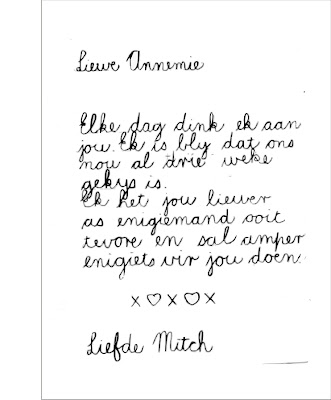 Liewe Annemie
Elke dag dink ek aan
jou. Ek is bly dat ons
nou al drie weke
gekys is.
Ek het jou liewer
as enigiemand ooit
tevore en sal amper
enigiets vir jou doen.
x♡x♡x
Liefde Mitch